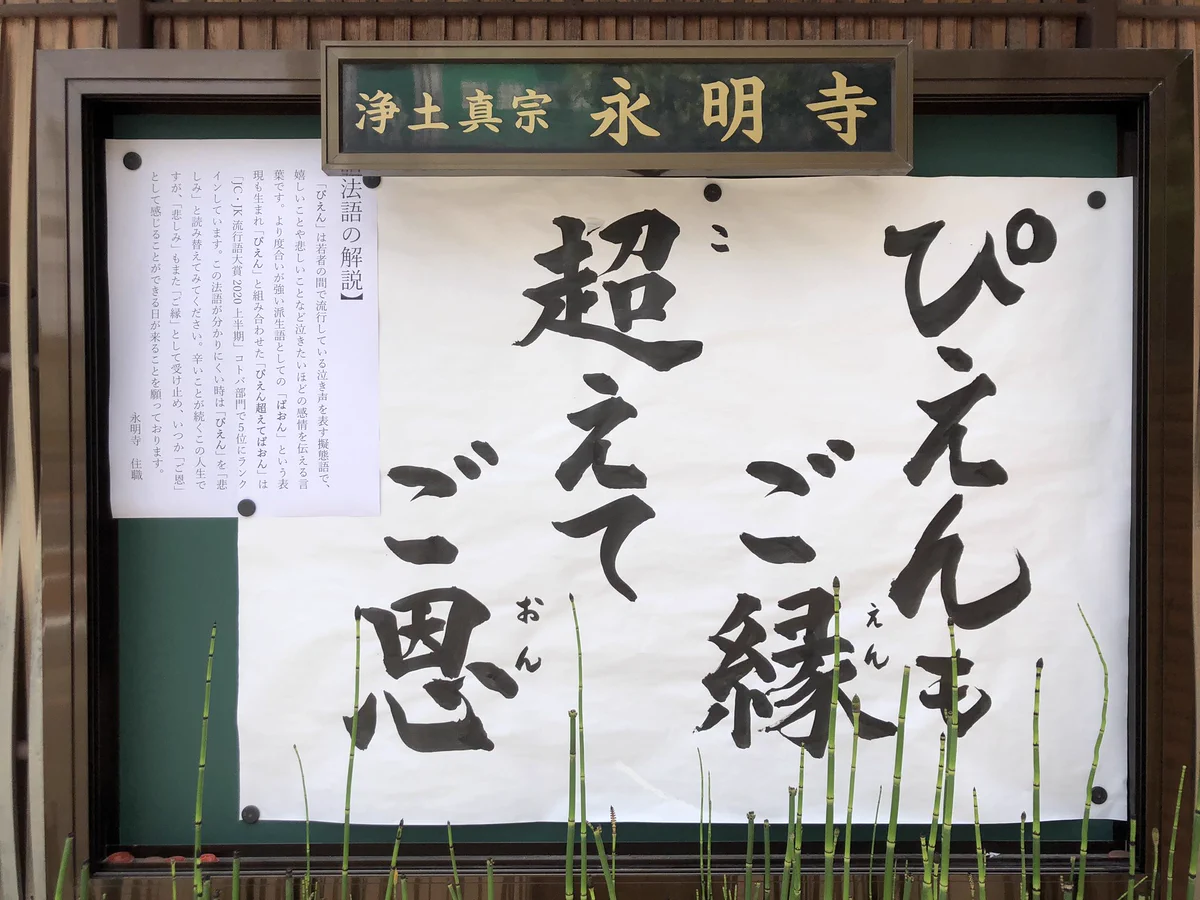 浄土真宗 永明寺
ぴえんも
ご縁
えん
超えて
こ
ご恩
おん
【法語の解説】
「ぴえん」は若者の間で流行している泣き声を表す擬態語で、
嬉しいことや悲しいことなど泣きたいほどの感情を伝える言
葉です。より度合いが強い派生語としての「ぱおん」という表
現も生まれ「ぴえん」と組み合わせた「ぴえん超えてぱおん」は
「JC・JK流行語大賞2020上半期」コトバ部門で5位にランク
インしています。この法語が分かりにくい時は「ぴえん」を「悲
しみ」と読み替えてみてください。辛いことが続くこの人生で
すが、「悲しみ」もまた「ご縁」として受け止め、いつか「ご恩」
として感じることができる日が来ることを願っております。
永明寺 住職